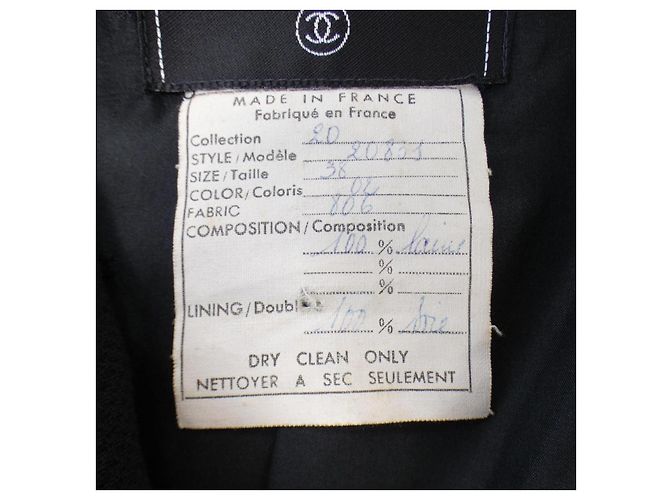 MADE IN FRANCE
Fabriqué en France
Collection 20
STYLE/Modèle
SIZE/Taille 36
COLOR/Coloris 02
FABRIC 806
COMPOSITION/Composition
100 % Laine
%
%
LINING/Doubl
100 % Soie
DRY CLEAN ONLY
NETTOYER A SEC SEULEMENT